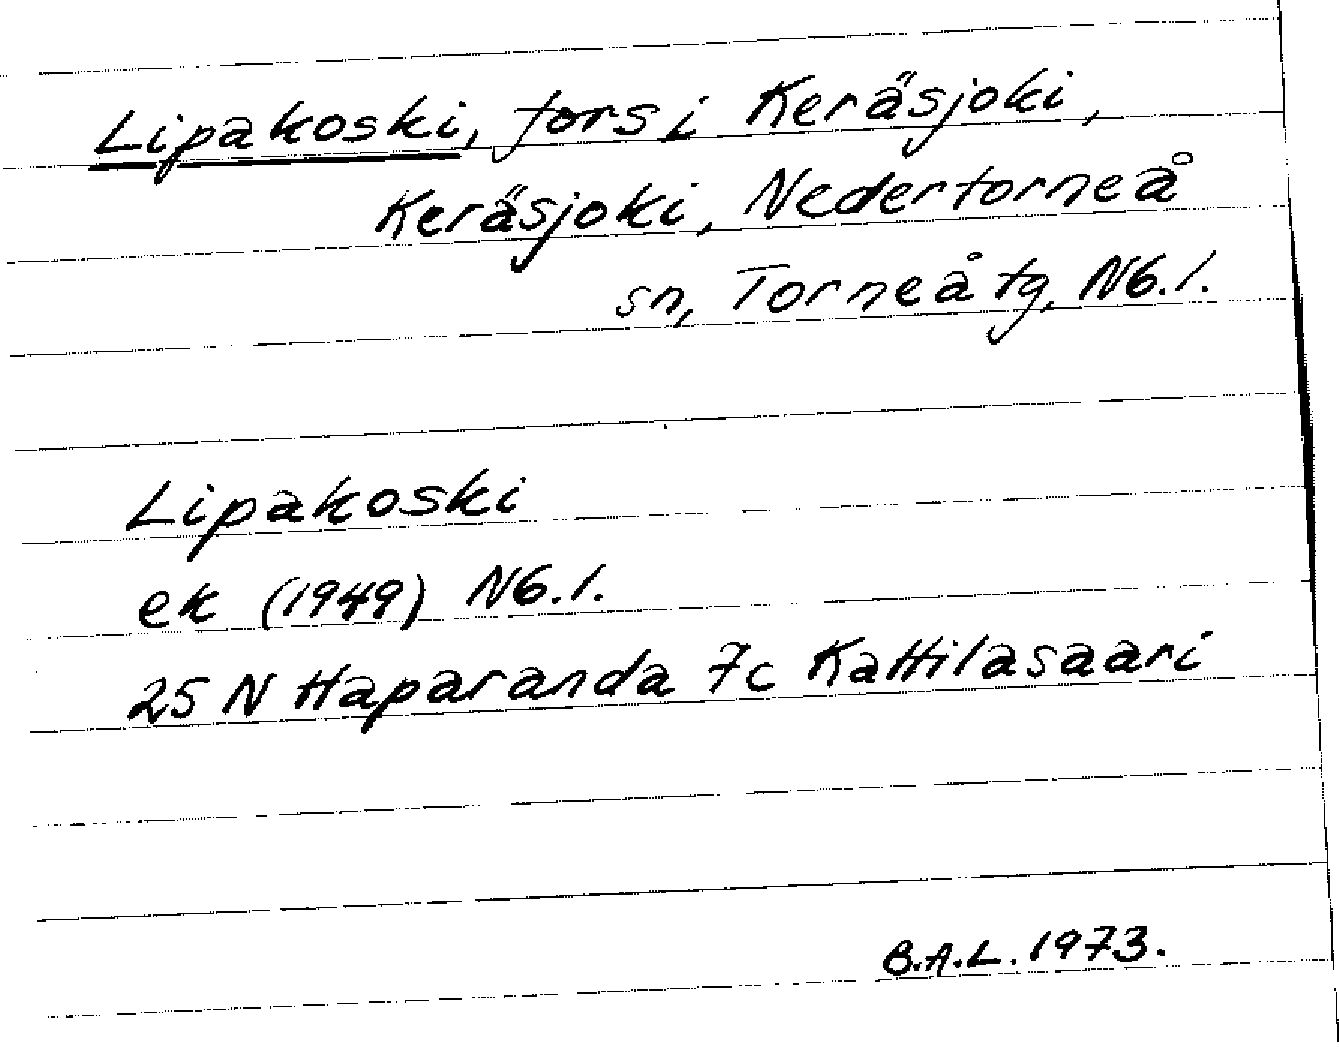 Lipakoski, fors i Keräsjoki,
Keräsjoki, Nedertorneå
sn, Torneå tg, N6.1.
Lipakoski
ek (1949) N6.1.
25 N Haparanda 7c Kattilasaari
B.A.L. 1973.